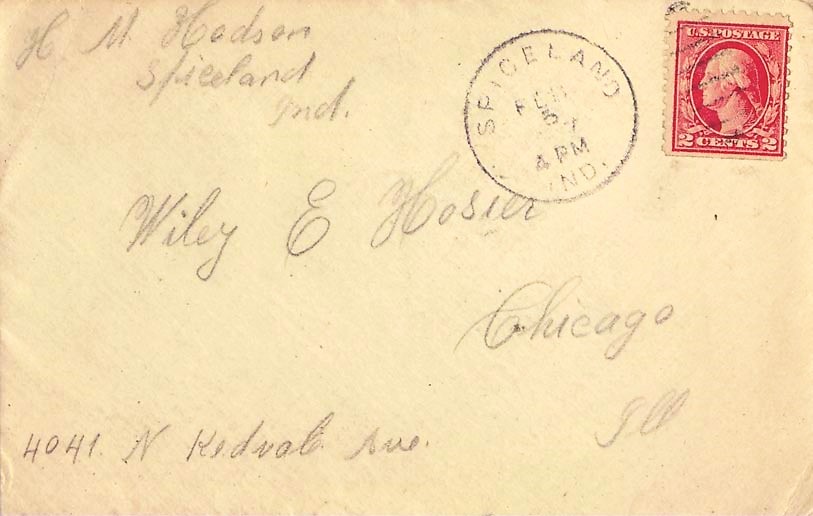 H. M. Hodson
Spiceland
Ind.
SPICELAND
FEB
5
4 PM
IND.
U.S. POSTAGE
2 CENTS 2
Wiley E Hosier
Chicago
Ill
4041 N Kedvale Ave.